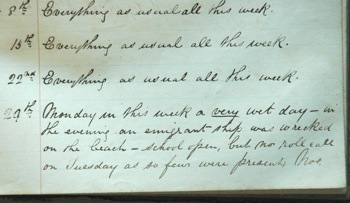 8th Everything as usual all this week.
15th Everything as usual all this week.
22nd Everything as usual all this week.
29th Monday in this week a very wet day – in
the evening an emigrant ship was wrecked
on the beach – school open, but no roll call
on Tuesday as so few were present.